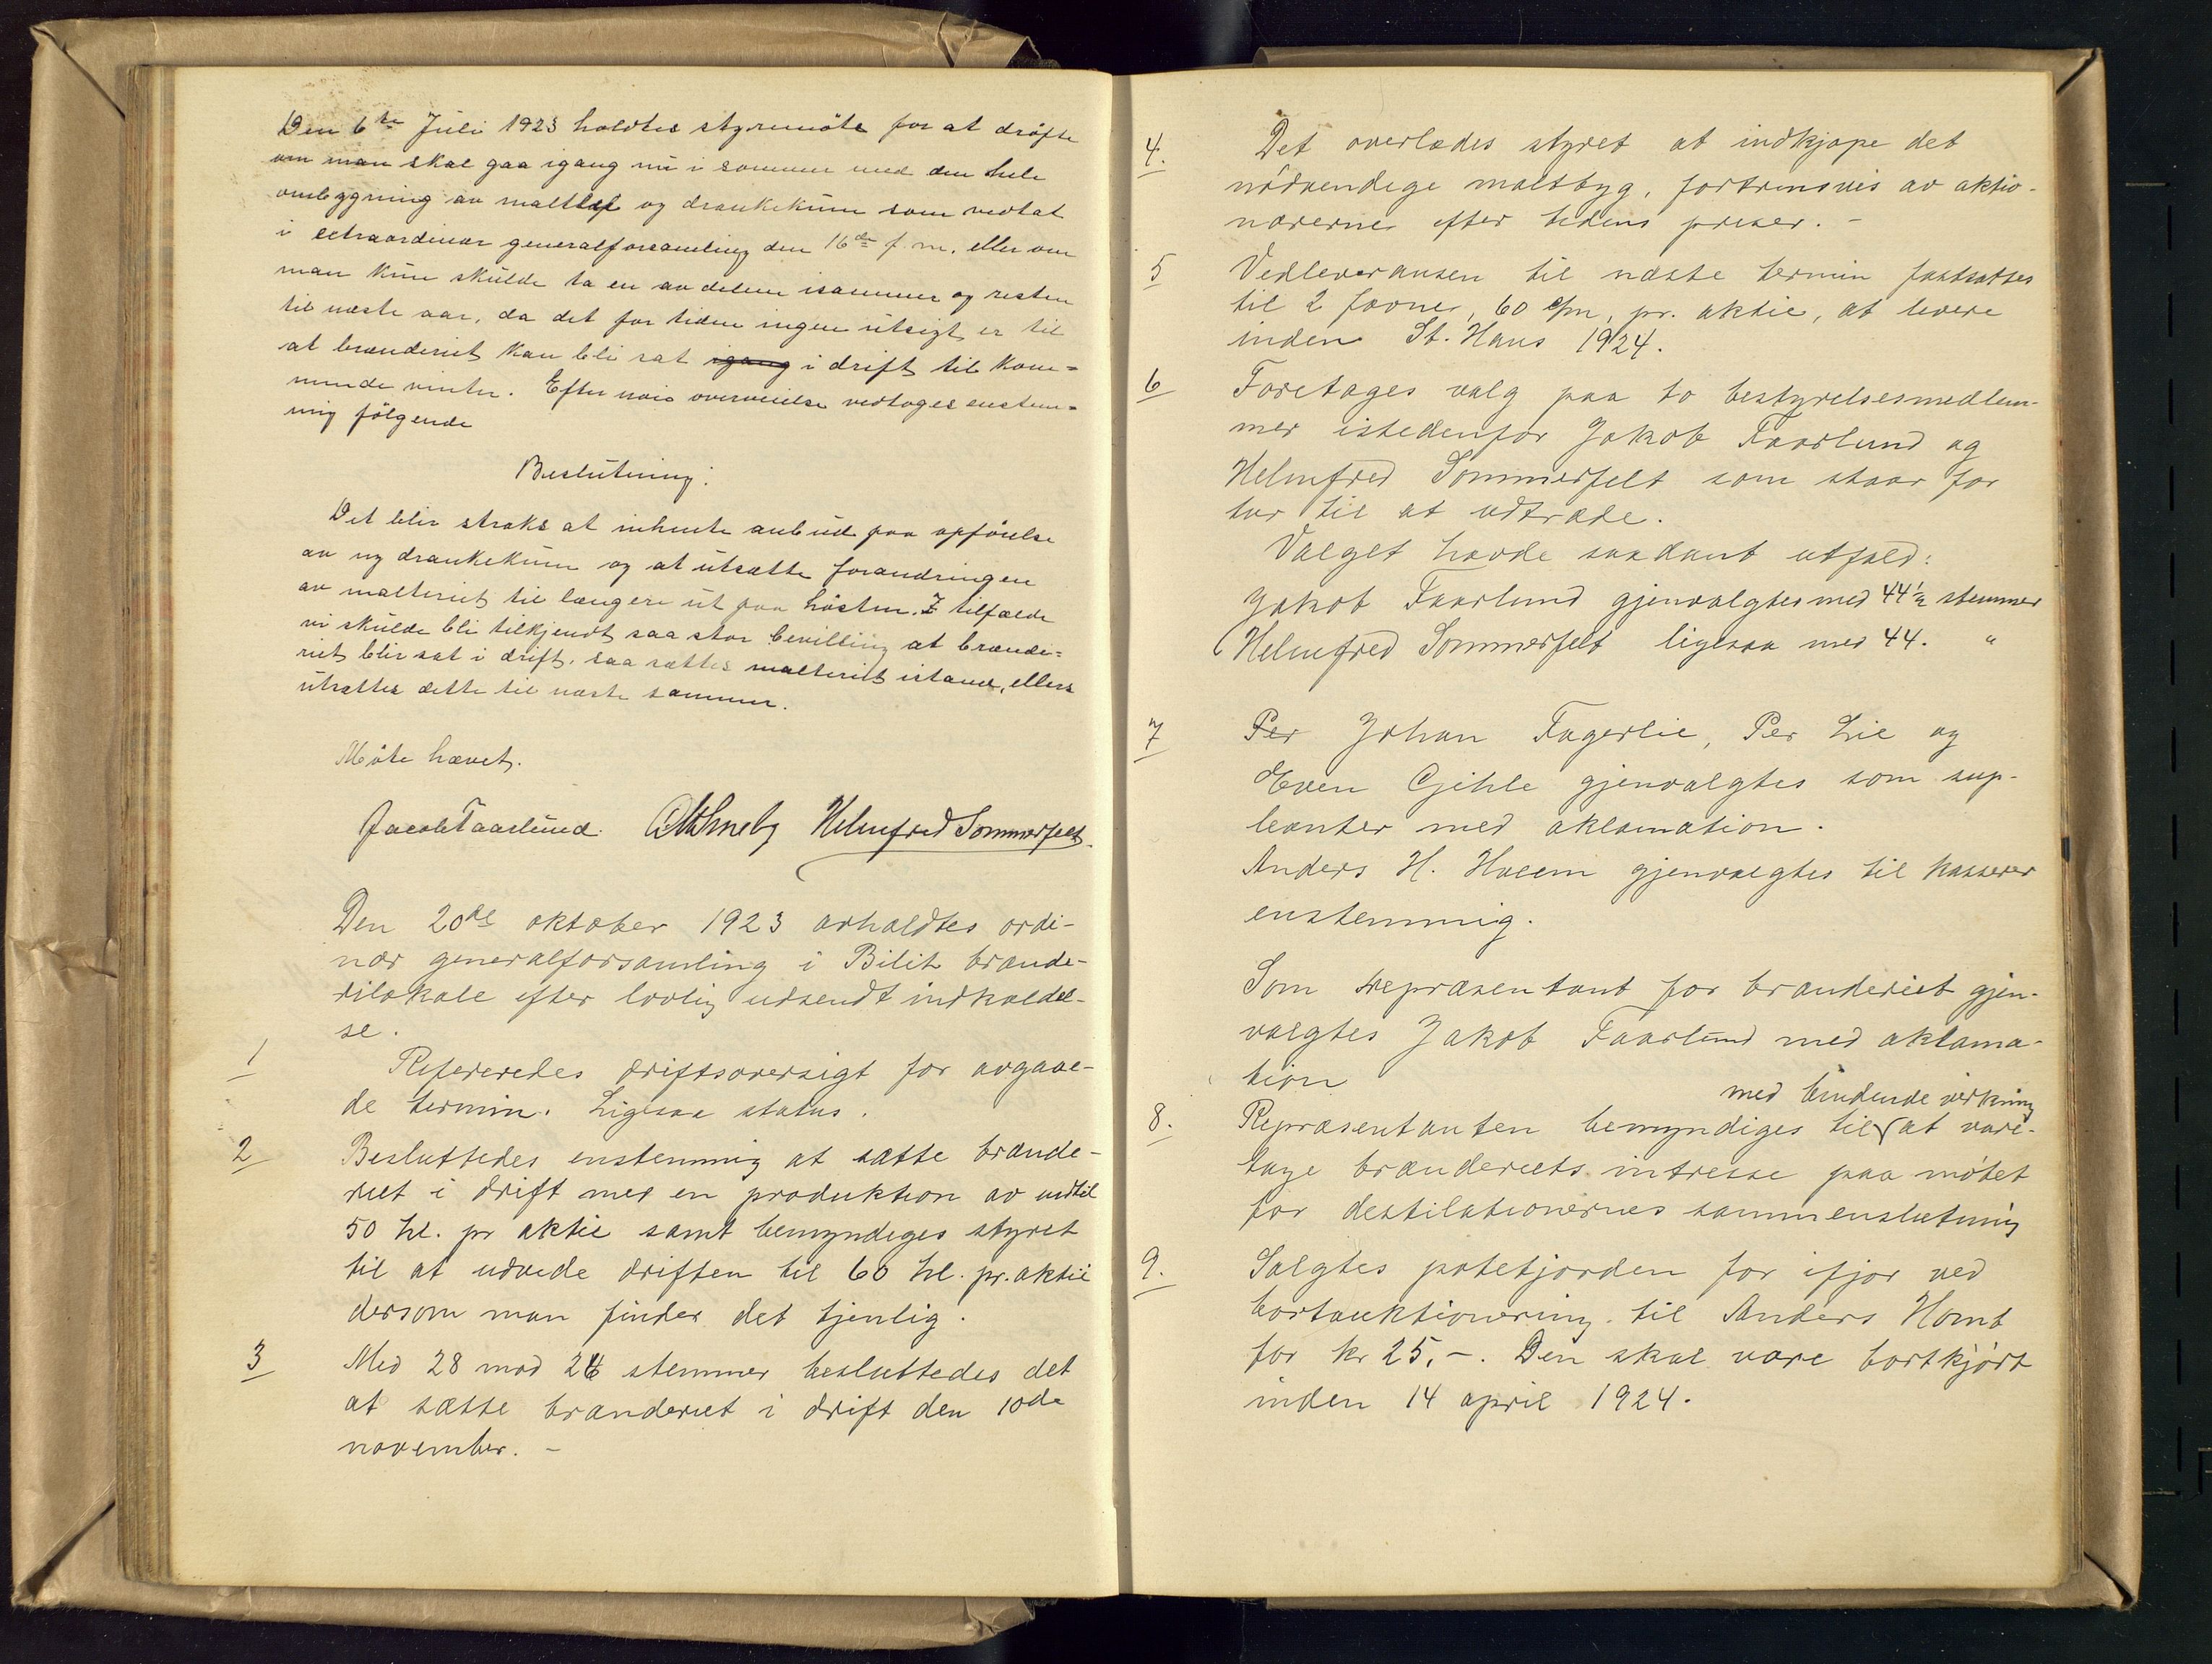 Den 6te Juli 1923 holdtes styremöte for at dröfte
om man skal gaa igang nu i sommer med den hele
ombygning av maltloft og drankekum som vedtat
i extraordinær generalforsamling den 16de f.m. eller om
man kun skulde ta en av delene isommer og resten
til næste aar, da det for tiden ingen utsigt er til
at brænderiet kan bli sat igang i drift til kom=
mende vinter. Efter nöie overveielse vedtoges enstem=
mig fölgende
Beslutning:
Det blir straks at inhente anbud paa opförelse
av ny drankekum og at utsætte forandringen
av malteriet til længere ut paa hösten. I tilfælde
vi skulde bli tilkjendt saa stor bevilling at brænde=
riet blir sat i drift, saa sættes malteriet istand, ellers
utsættes dette til næste sommer.
Möte hævet.
Jacob Faarlund. Helmfred Sommerfelt.
Den 20de oktober 1923 avholdtes ordi-
nær generalforsamling i Bilit brænde-
rilokale efter lovlig udsendt indkaldel-
se.
1 Refereredes driftsoversigt for avgaae-
de termin. Ligesaa status.
2 Besluttedes enstemmig at sætte brænde-
riet i drift med en produktion av indtil
50 hl. pr aktie samt bemyndiges styret
til at udvide driften til 60 hl. pr. aktie
dersom man finder det tjenlig.
3 Med 28 mod 26 stemmer besluttedes det
at sætte brænderiet i drift den 10de
november. -
4. Det overlades styret at indkjøpe det
nödvendige maltbyg, fortrinsvis av aktio-
nærerne efter tidens priser. -
5 Vedleveransen til næste termin fastsættes
til 2 favne, 60 c/m, pr. aktie, at levere
inden St. Hans 1924.
6 Foretages valg paa to bestyrelsesmedlem-
mer istedenfor Jakob Faarlund og
Helmfred Sommerfelt som staar for
tur til at udtræde.
Valget havde saadant utfald:
Jakob Faarlund gjenvalgtes med 44½ stemmer
Helmfred Sommerfelt ligesaa med 44. "
7 Per Johan Fagerlie, Per Lie og
Even Gjihle gjenvalgtes som sup-
leanter med aklamation.
Anders H. Hveem gjenvalgtes til kasserer
enstemmig.
Som repræsentant for brænderiet gjen-
valgtes Jakob Faarlund med aklama-
tion
med bindende virkning
8. Repræsentanten bemyndiges til at vare-
tage brænderiets intresse paa mötet
for destilationernes sammenslutning
9. Solgtes potetjorden for ifjor ved
bortauktionering til Anders Homb
for kr 25,-. Den skal være bortkjört
inden 14 april 1924.